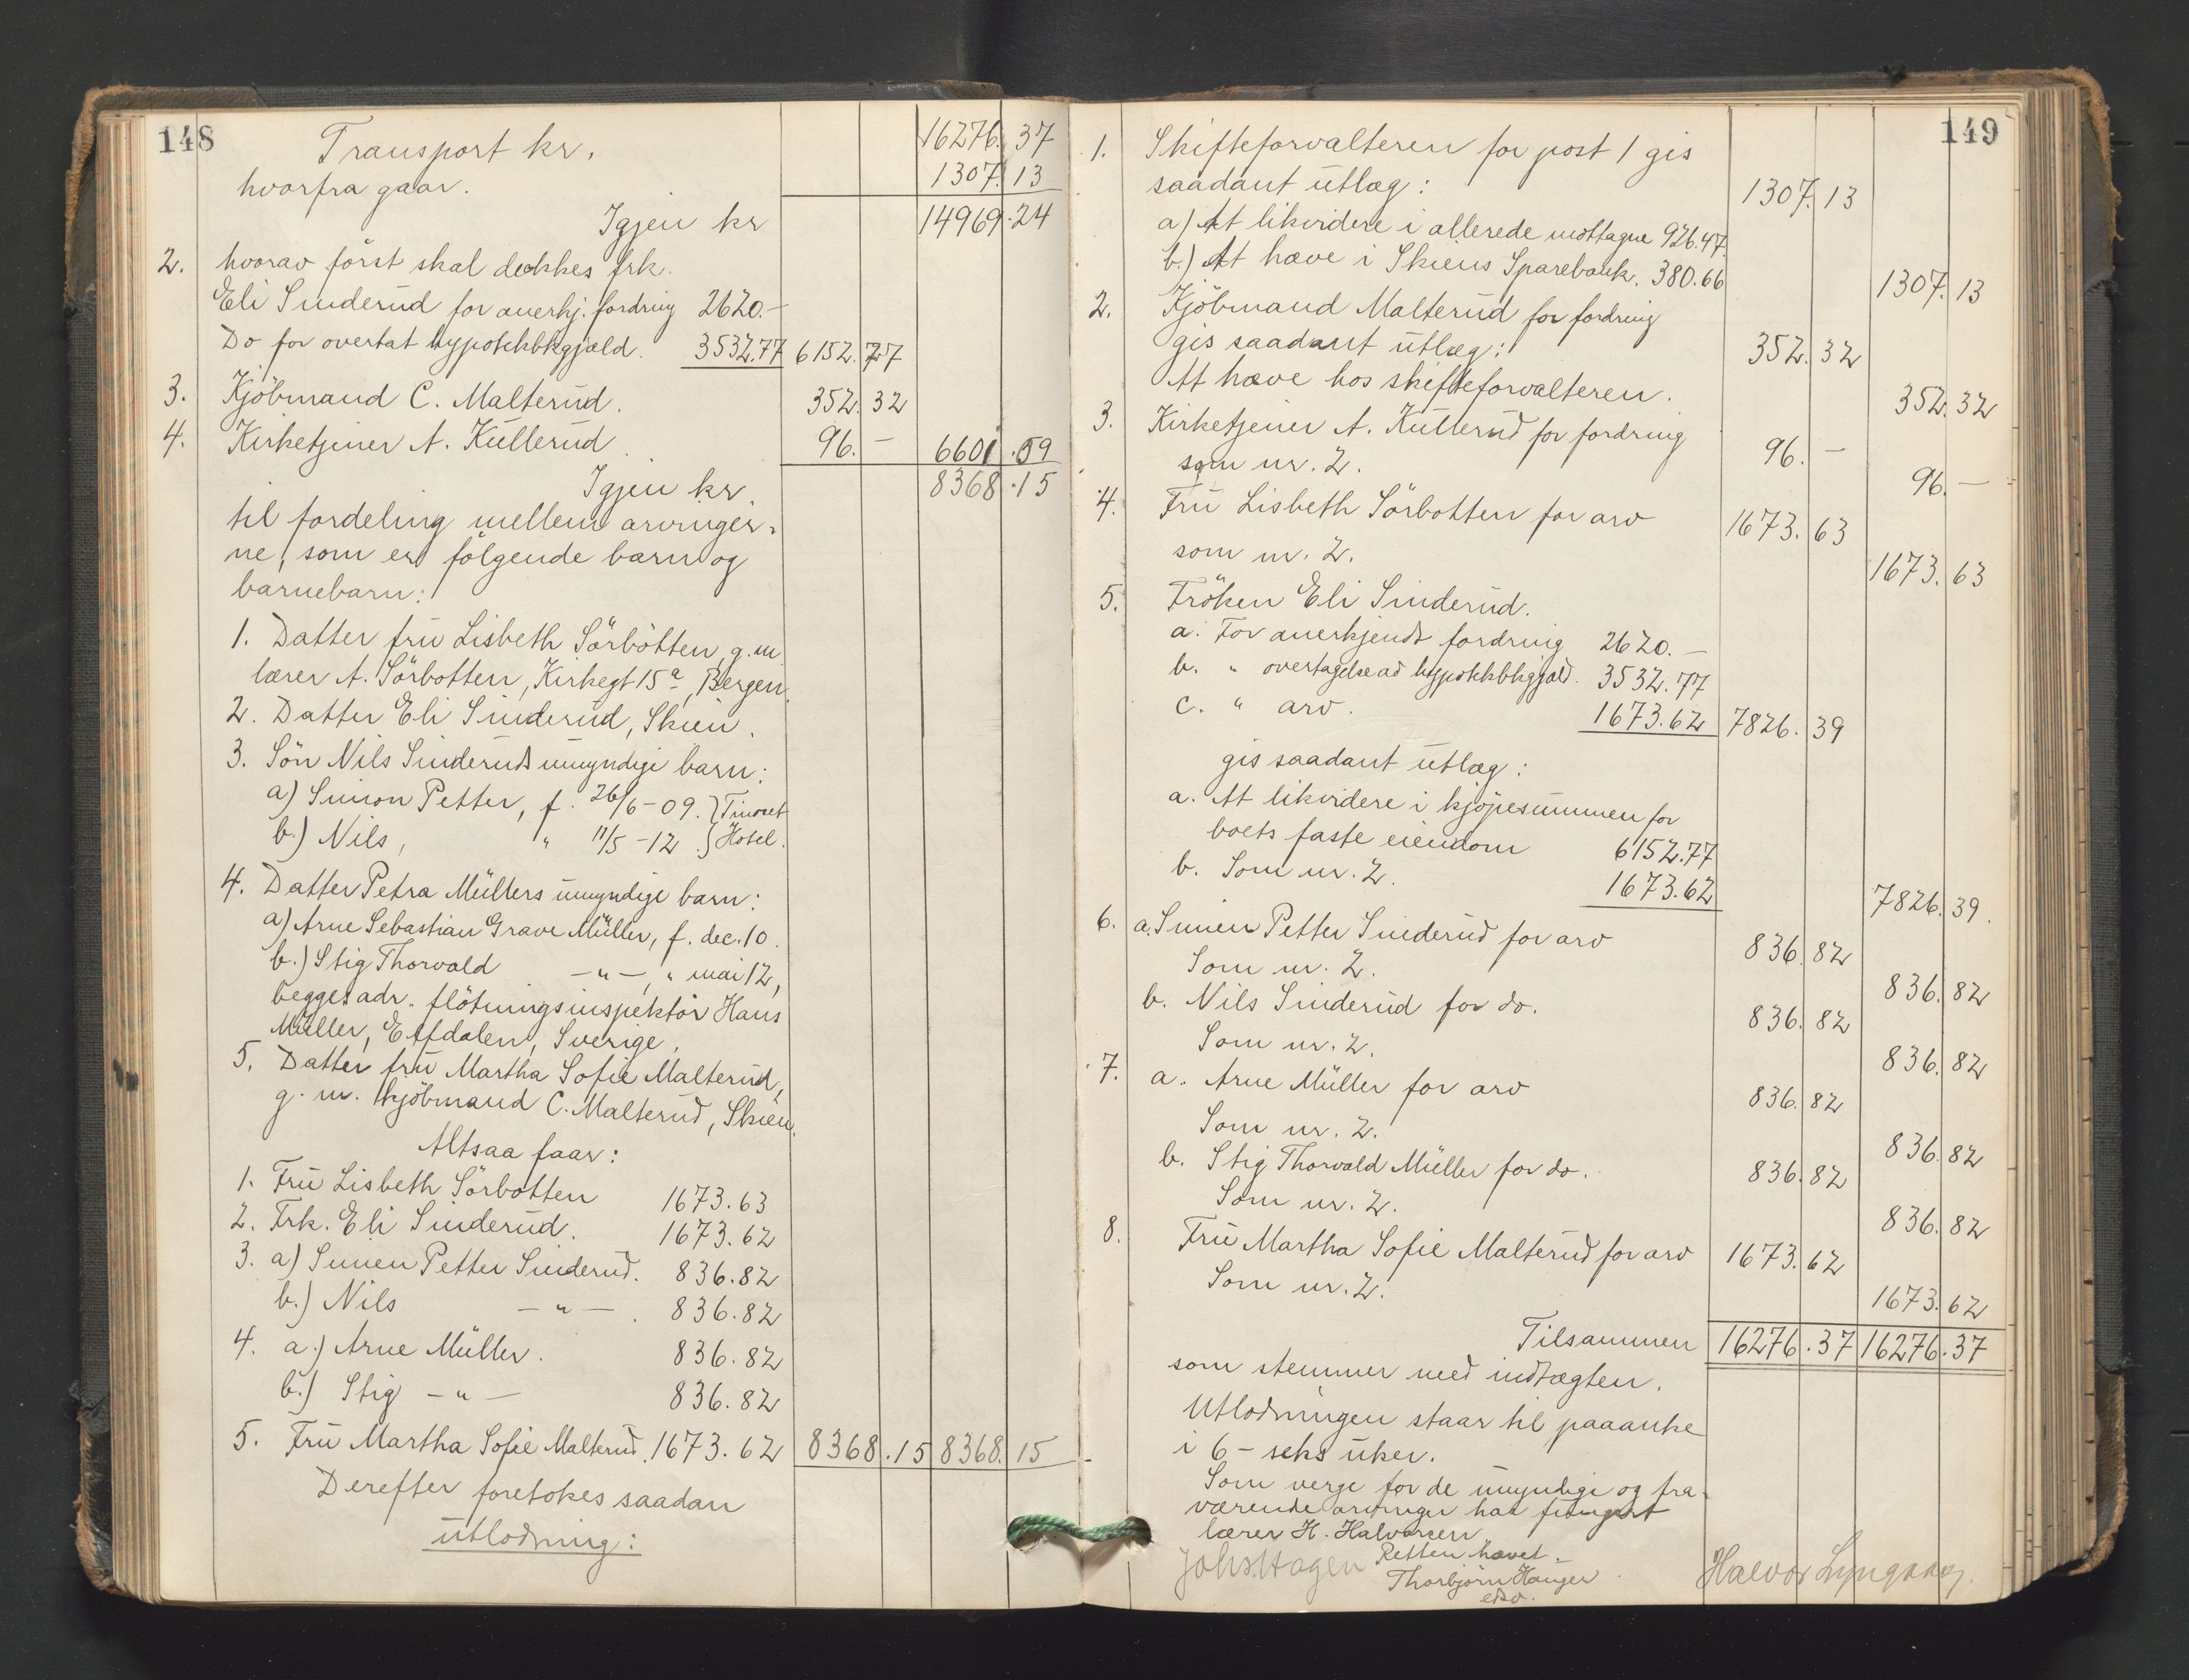 148
Transport kr. 16276. 37
hvorfra gaar. 1307. 13
Igjen kr 14969. 24
2. hvorav först skal dækkes frk.
Eli Sinderud for anerkj. fordring 2620.-
Do for overtat hypothkbkgjæld. 3532.77 6152. 77
3. Kjöbmand C. Malterud. 352. 32
4. Kirketjener A. Kullerud. 96. - 6601. 09
Igjen kr. 8368. 15
til fordeling mellem arvinger-
ne, som er fölgende barn og
barnebarn:
1. Datter fru Lisbeth Sörbötten, g. m.
lærer A. Sörbotten, Kirkegt 15a, Bergen.
2. Datter Eli Sinderud, Skien.
3. Sön Nils Sinderuds umyndige barn:
a) Simon Petter, f. 26/6-09. } Tinoset
b.) Nils, " 11/5-12. } Hotel.
4. Datter Petra Müllers umyndige barn:
a) Arne Sebastian Grave Müller, f. dec. 10.
b.) Stig Thorvald -"-, " mai 12,
begges adr. flötningsinspektör Hans
Müller, Elfdalen, Sverige.
5. Datter fru Martha Sofie Malterud,
g. m. kjöbmand C. Malterud, Skien.
Altsaa faar:
1. Fru Lisbeth Sörbotten 1673.63
2. Frk. Eli Sinderud. 1673.62
3. a) Simen Petter Sinderud. 836.82
b.) Nils -"-. 836.82
4. a.) Arne Müller. 836.82
b.) Stig -"- 836.82
5. Fru Martha Sofie Malterud. 1673.62 8368. 15 8368. 15
Derefter foretokes saadan
utlodning:
149
1. Skifteforvalteren for post 1 gis
saadant utlæg: 1307. 13
a) At likvidere i allerede mottagne 926.47.
b.) At hæve i Skiens Sparebank. 380.66 1307. 13
2. Kjöbmand Malterud for fordring
gis saadant utlæg: 352. 32
At hæve hos skifteforvalteren. 352. 32
3. Kirketjener A. Kullerud for fordring 96. -
som nr. 2. 96. -
4. Fru Lisbeth Sörbotten for arv 1673. 63
som nr. 2. 1673. 63
5. Fröken Eli Sinderud.
a. For anerkjendt fordring 2620.-
b. " overtagelse ad hypothkbkgjæld. 3532.77
c. " arv. 1673.62 7826. 39
gis saadant utlæg:
a. At likvidere i kjöpesummen for
boets faste eiendom 6152.77
b. Som nr. 2. 1673.62 7826. 39.
6. a. Simen Petter Sinderud for arv 836. 82
Som nr. 2. 836. 82
b. Nils Sinderud for do. 836. 82
Som nr. 2. 836. 82
7. a. Arne Müller for arv 836. 82
Som nr. 2. 836. 82
b. Stig Thorvald Müller for do. 836. 82
Som nr. 2. 836. 82
8. Fru Martha Sofie Malterud for arv 1673. 62
Som nr. 2. 1673. 62
Tilsammen 16276. 37 16276. 37
som stemmer med indtægten.
Utlodningen staar til paaanke
i 6 - seks uker.
Som verge for de umyndige og fra-
værende arvinger har fungert
lærer H. Halvorsen
Retten hævet.
Johs. Hagen Thorbjörn Hauger Halvor Lyngaas
edsv.